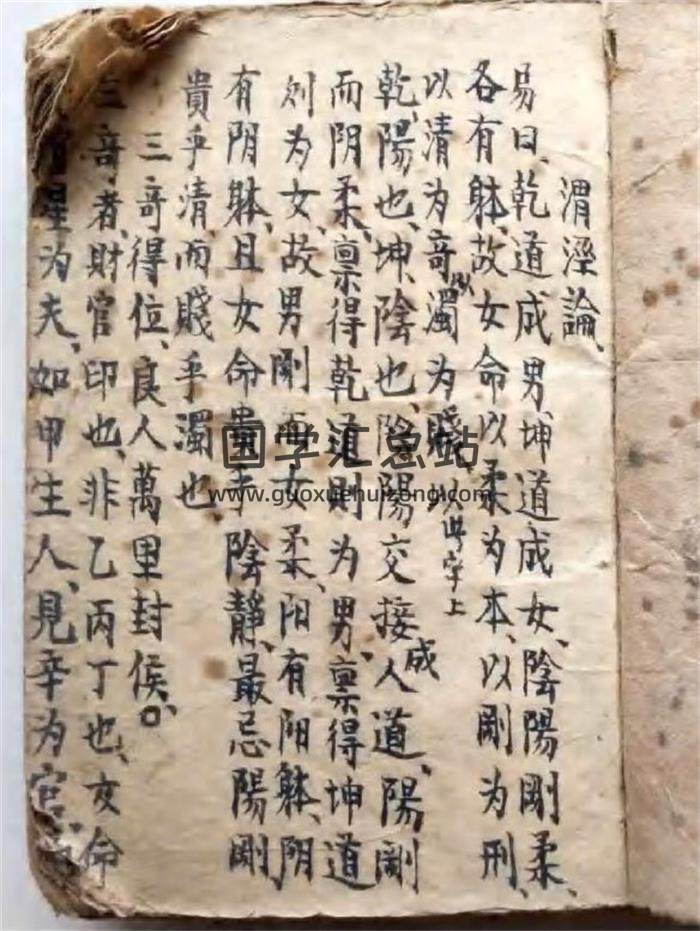 渭涇論、
易曰、乾道成男坤道成女、陰陽剛柔、
各有躰、故女命以柔为本、以剛为刑、
以清为竒、以濁为賤、以此字上
乾、陽也、坤、陰也、陰陽交接成人道、陽剛
而阴柔、禀得乾道則为男、禀得坤道
则为女、故男剛而女柔、阳有阳躰、阴
有阴躰、且女命貴乎陰靜、最忌陽剛
貴乎清、而賤乎濁也、
三竒得位、良人萬里封侯〇、
三竒者、財官印也、非乙丙丁也、女命
星为夫、如甲生人、見辛为官、
国学汇总站
www.guoxuehuizong.com